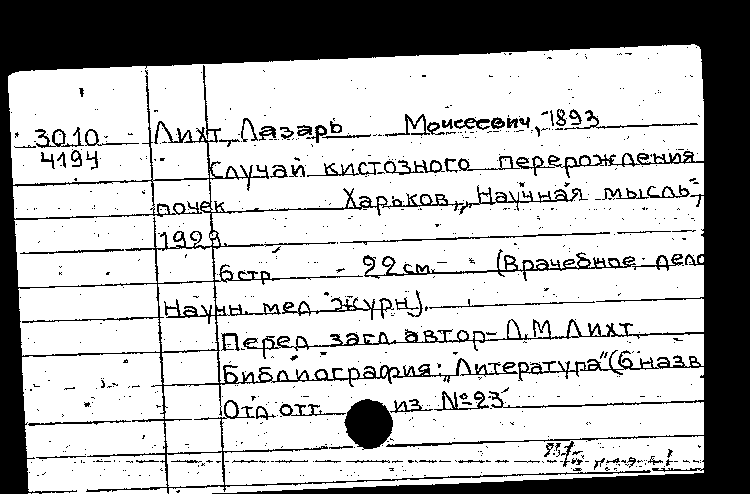 30.10 Лихт, Лазарь Моисеевич, 1893
4194 Случай кистозного перерождения
почек Харьков, „Научная мысль",
1929.
6 стр. 22 см. (Врачебное дело
Научн. мед. журн).
Перед загл. автор- Л.М. Лихт
Библиография: „Литература" (6 назв
Отд. отт. из №23.